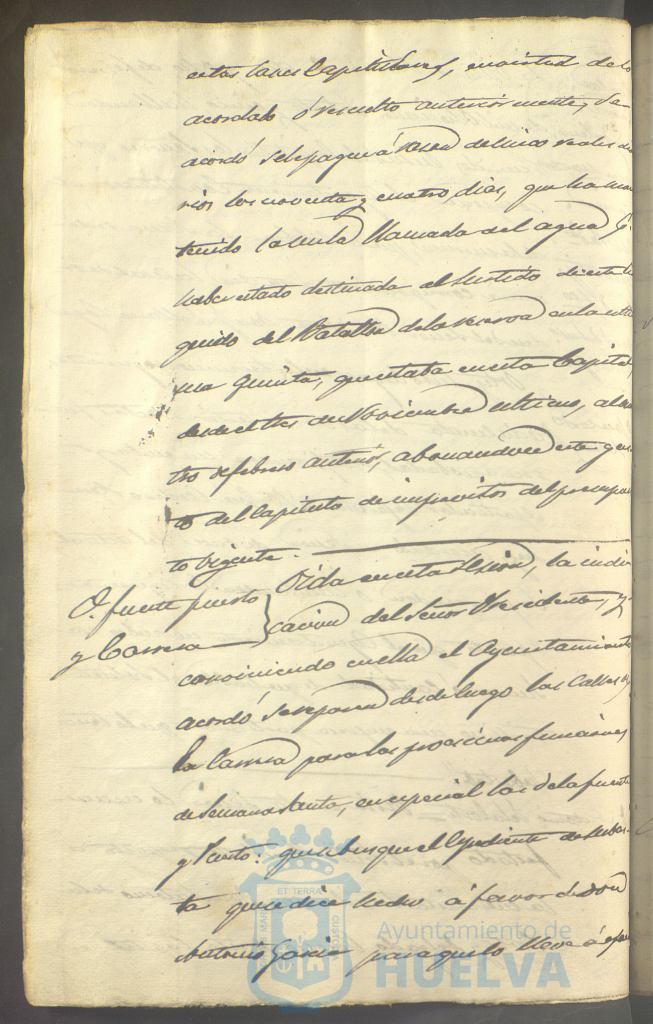 estas Casas Capitulares, en virtud de lo
acordado ó resuelto anteriormente, se
acordó se le pague á razon de cinco reales dia
rios los noventa y cuatro dias, que ha man
tenido la mula llamada del agua p.
haber estado destinada al surtido de este li
quido del Batallon de la reserva en la ulti
ma quinta, que estaba en esta Capital,
desde el tres de Noviembre ultimo, al cua
tro de febrero anterior, abonandose este gas
to del Capitulo de imprevistos del presupues
to vigente.
C. fuente puerto
y Carrera
Oida en esta sesion, la indi
cacion del Señor Presidente, y
conviniendo en ella el Ayuntamiento
acordó se reparen desde luego las Calles de
la Carrera para las procsimas funciones
de Semana Santa, en especial las de la fuente
y Puerto: que se busque el Espediente de subas
ta que se dice hecho á favor de don
Antonio Garcia para que lo lleve á efec
MAR
ET TERRA
CUSTO
Ayuntamiento de
HUELVA